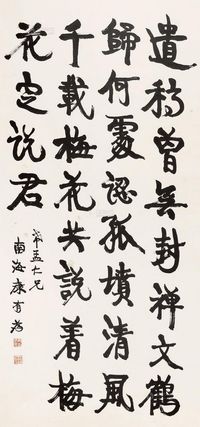 遺稿曾無封禪文鶴
歸何處認孤墳清風
千載梅花共說着梅
花定說君
孟仁兄
南海康有為